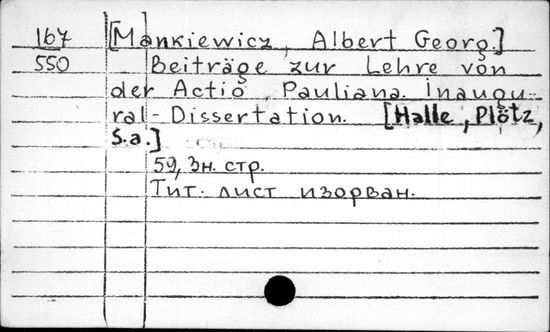 167 [Mankiewicz, Albert Georg.]
550 Beiträge zur Lehre von
der Actio Pauliana. Inaugu-
ral-Dissertation. [Halle, Plötz,
S.a.]
59, 3н. стр.
Тит. лист изорван.